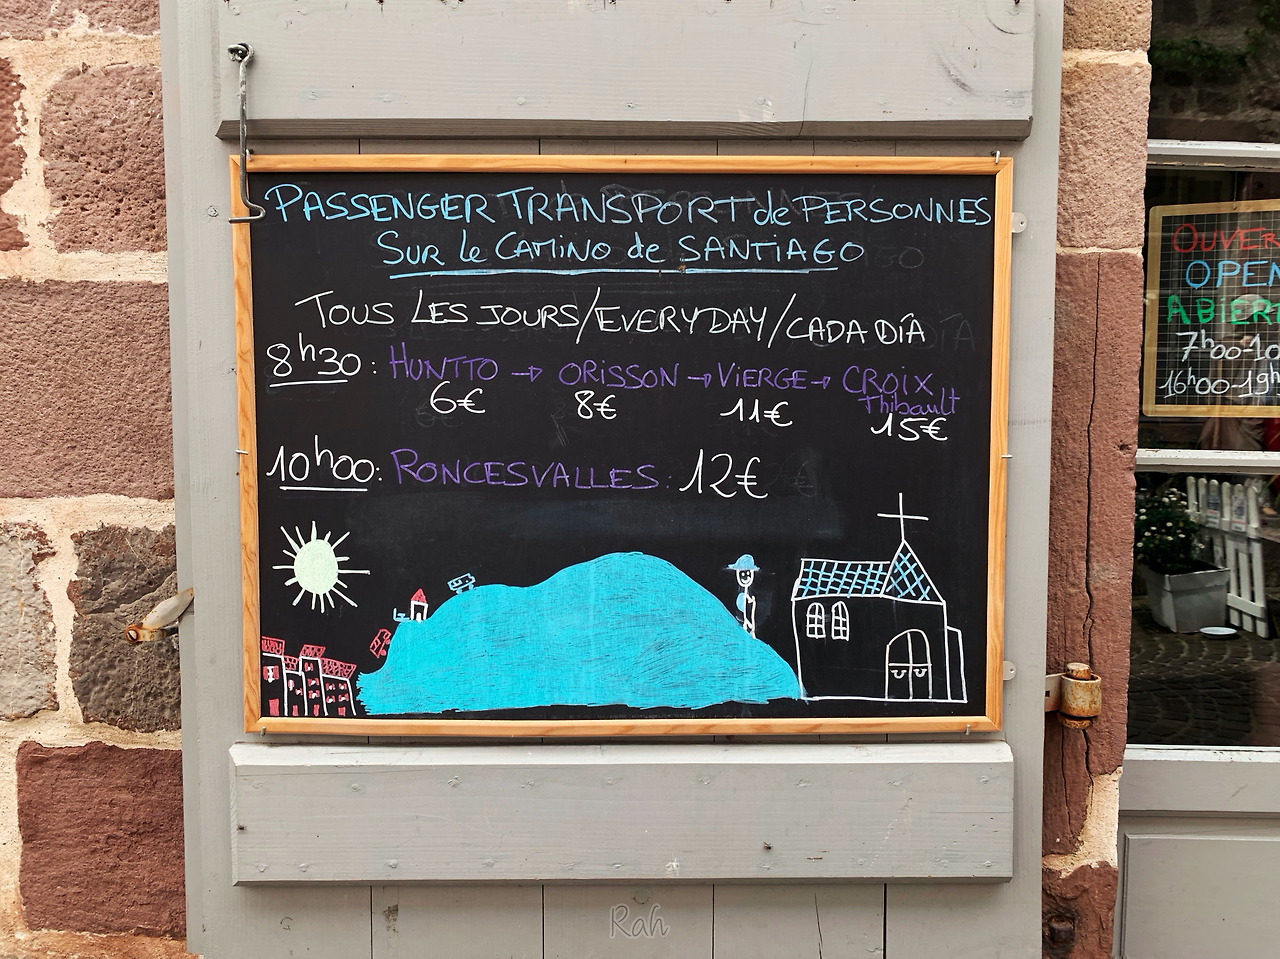 PASSENGER TRANSPORT de PERSONNES
SUR le CAMINO de SANTIAGO
TOUS LES JOURS/EVERYDAY/CADA DÍA
8h30: HUNTTO → ORISSON → VIERGE → CROIX Thibault
6€ 8€ 11€ 15€
10h00: RONCESVALLES: 12€
OUVER
OPEN
ABIER
7h00-10
16h00-19h
Rah